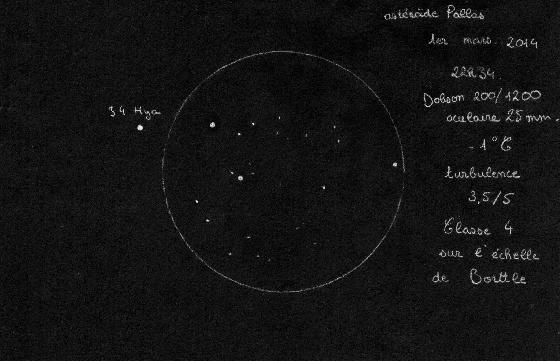 astéroïde Pallas
1er mars 2014
22h34
34 Hya
Dobson 200/1200
oculaire 25 mm.
-1°C
turbulence
3,5/5
Classe 4
sur l'échelle
de Borttle